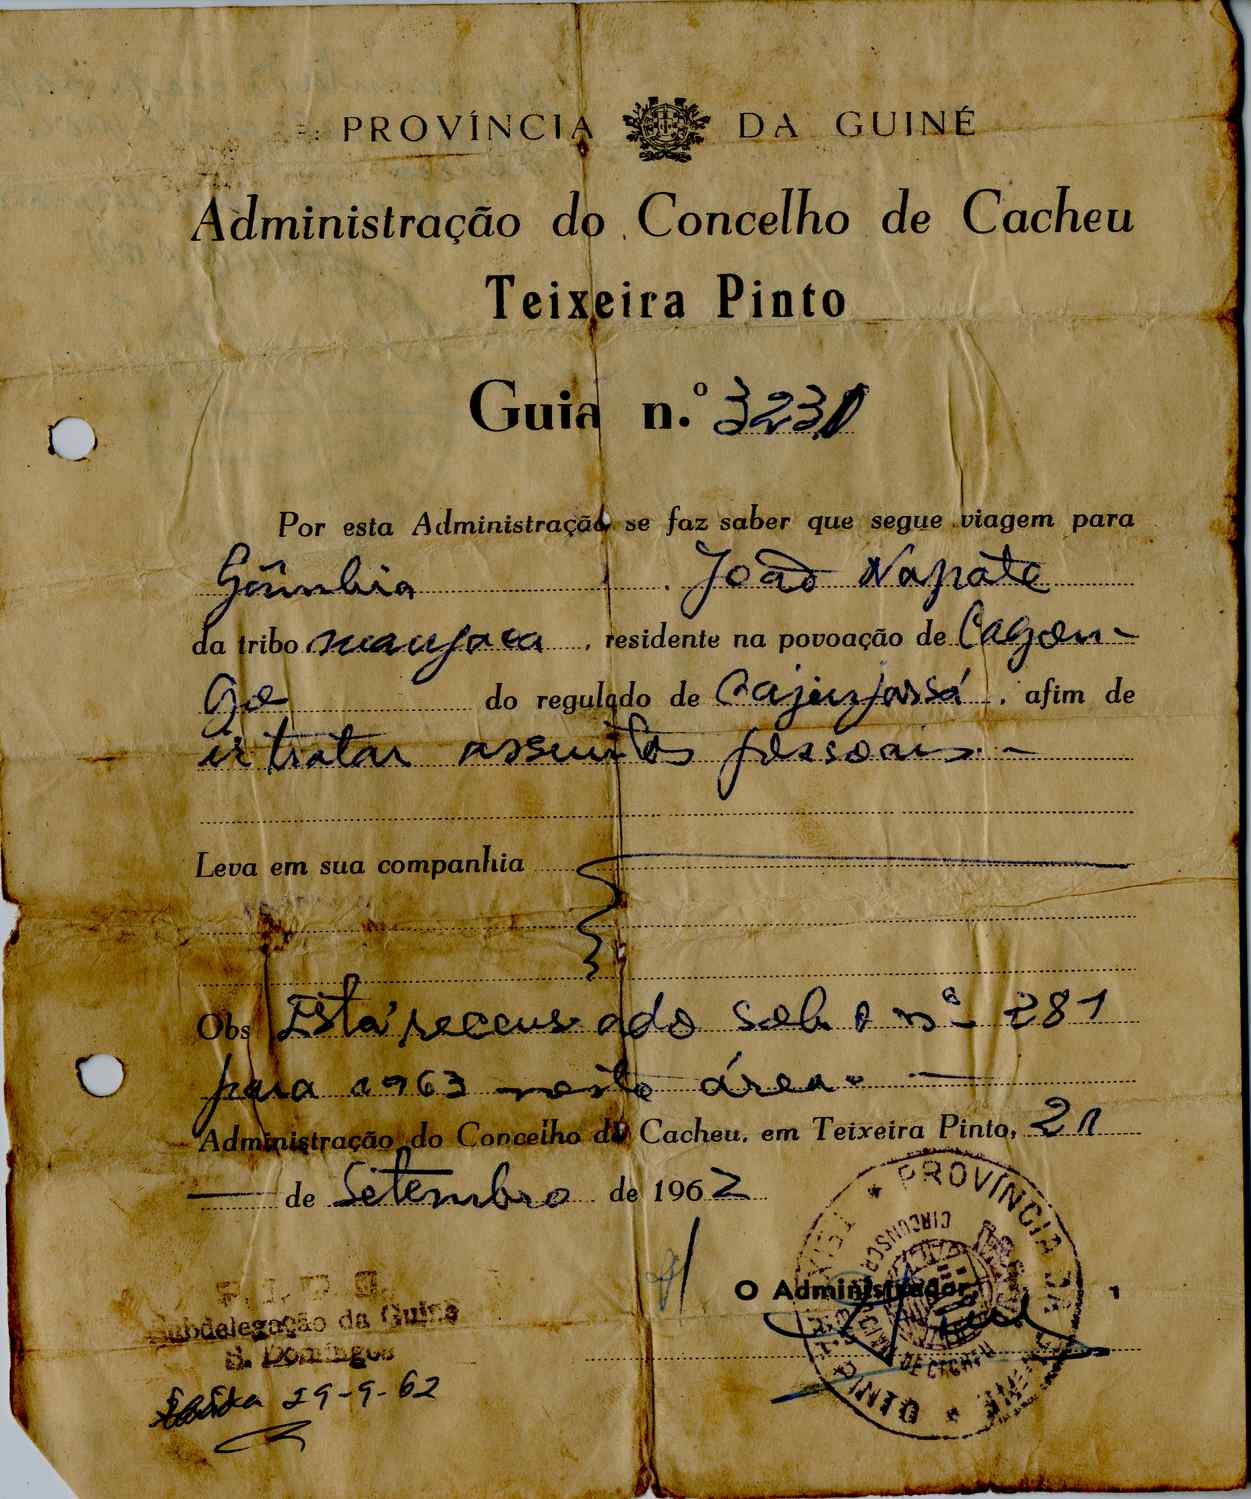 PROVÍNCIA DA GUINÉ
Administração do Concelho de Cacheu
Teixeira Pinto
Guia n.º 3231
Por esta Administração se faz saber que segue viagem para
Gâmbia João Napate
da tribo manjaca, residente na povoação de Cagon-
go do regulado de Cajinjassá, afim de
ir tratar assuntos pessoais.—
Leva em sua companhia
Obs Está recenseado sob o nº 281
para 1963 nesta área. —
Administração do Concelho de Cacheu, em Teixeira Pinto, 21
— de Setembro de 1962
O Administrador,
PROVÍNCIA DA GUINÉ
CIRCUNSCRIÇÃO
DE CACHEU
P. I. D. E.
Subdelegação da Guiné
S. Domingos
29-9-62